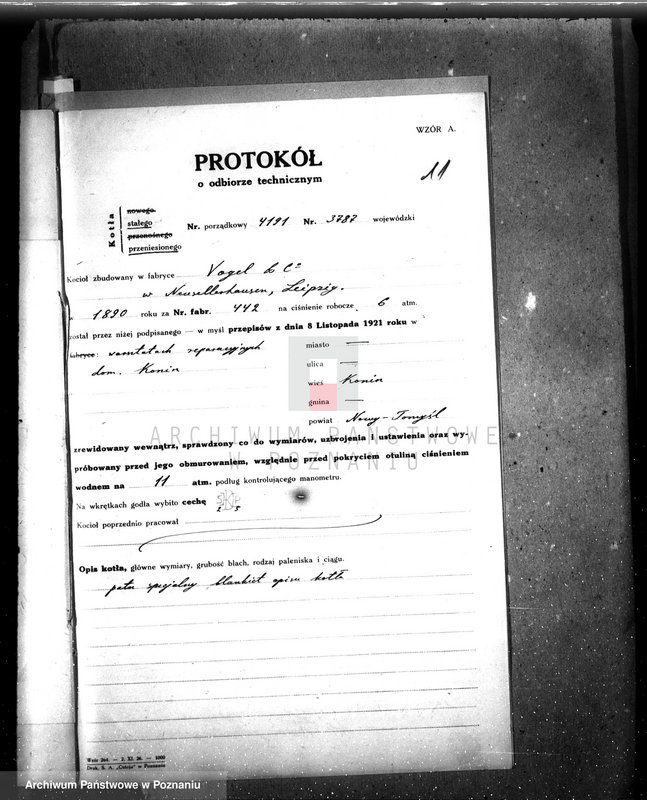 WZÓR A.
PROTOKÓŁ
11
o odbiorze technicznym
Kotła
nowego
stałego
przenośnego
przeniesionego
Nr. porządkowy 4191 Nr. 3787 wojewódzki
Kocioł zbudowany w fabryce Vogel & Co
w Neusellerhausen, Leipzig.
1890 roku za Nr. fabr. 442 na ciśnienie robocze 6 atm.
został przez niżej podpisanego — w myśl przepisów z dnia 8 Listopada 1921 roku w
fabryce: warsztatach reparacyjnych
dom. Konin
miasto —
ulica —
wieś Konin
gmina —
powiat Nowy-Tomyśl
ARCHIWUM PAŃSTWOWE
W POZNANIU
zrewidowany wewnątrz, sprawdzony co do wymiarów, uzbrojenia i ustawienia oraz wy-
próbowany przed jego obmurowaniem, względnie przed pokryciem otuliną ciśnieniem
wodnem na 11 atm. podług kontrolującego manometru.
Na wkrętkach godła wybito cechę
2 5
Kocioł poprzednio pracował
Opis kotła, główne wymiary, grubość blach, rodzaj paleniska i ciągu.
patrz specjalny blankiet opisu kotła
Wzór 264. — 2. XI. 26. — 1000
Druk. S. A. „Ostoja" w Poznaniu
Archiwum Państwowe w Poznaniu